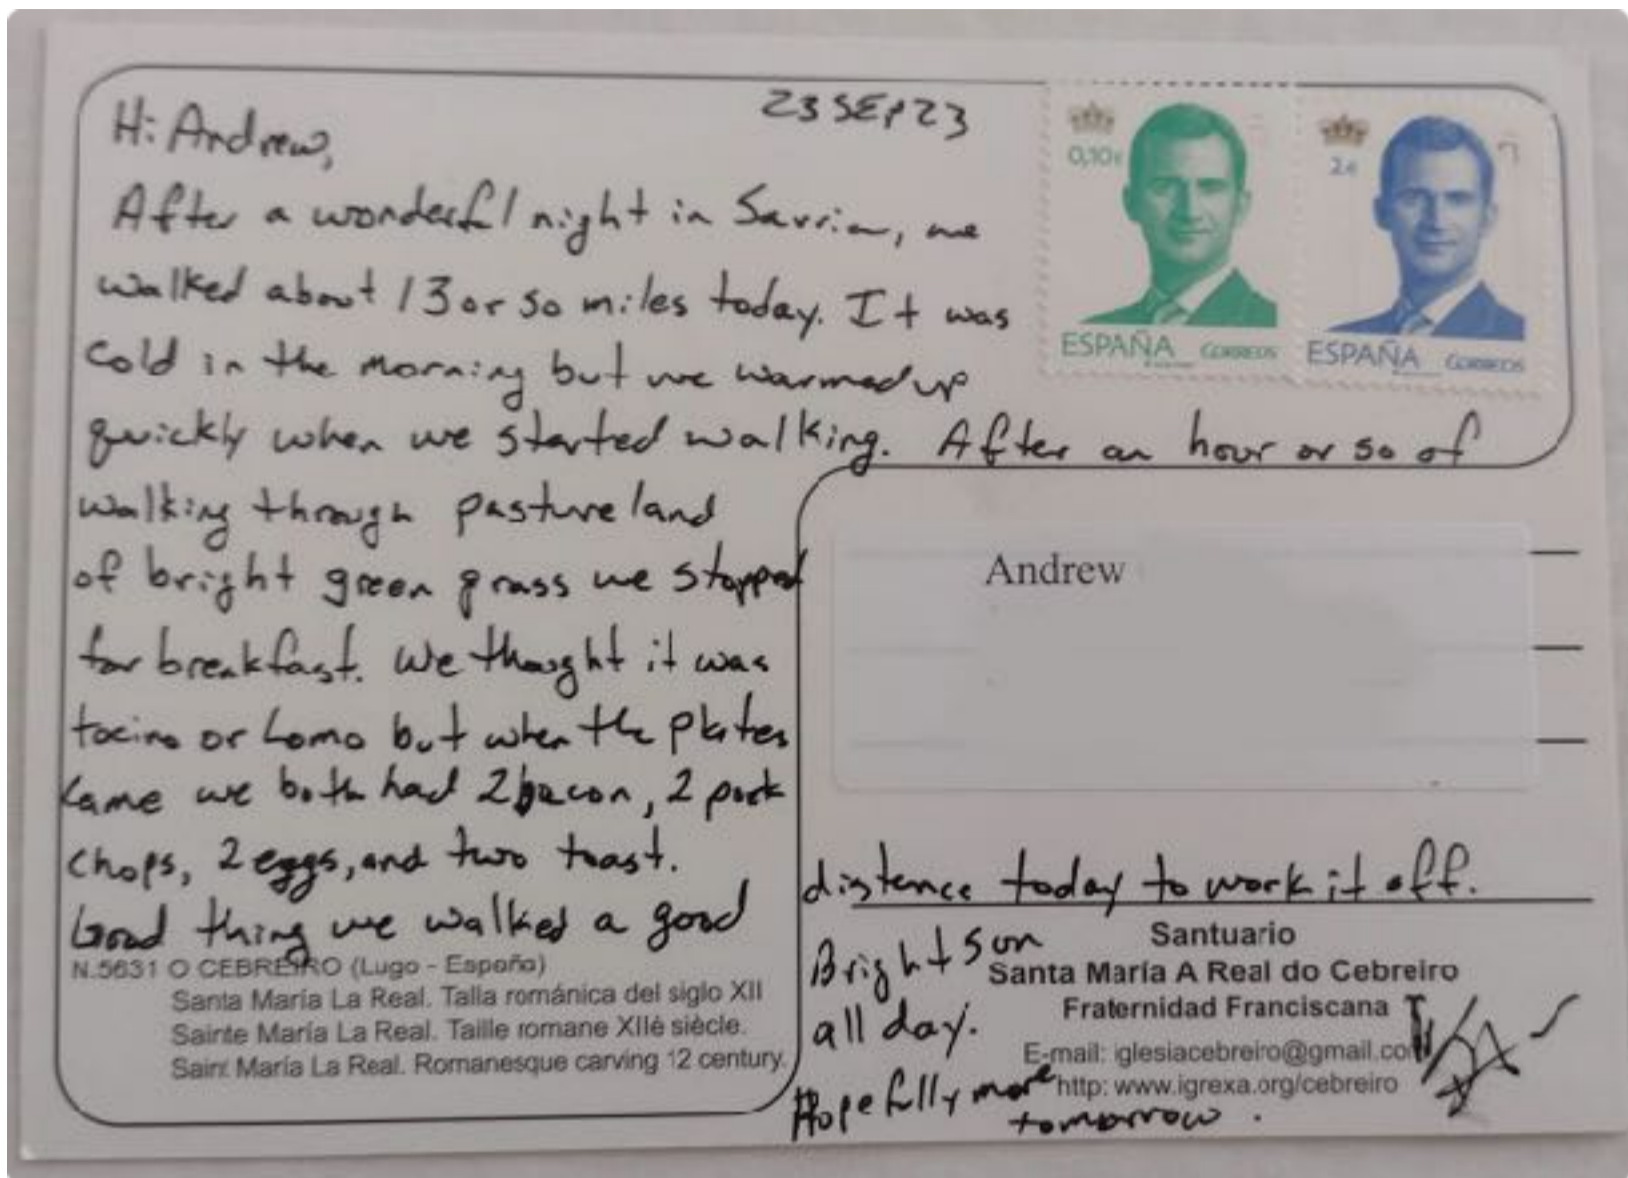 23 SEP 23
Hi Andrew,
After a wonderful night in Sarria, we
walked about 13 or so miles today. It was
cold in the morning but we warmed up
quickly when we started walking. After an hour or so of
walking through pasture land
of bright green grass we stopped
for breakfast. We thought it was
tocino or Lomo but when the plates
came we both had 2 bacon, 2 pork
chops, 2 eggs, and two toast.
Good thing we walked a good
distance today to work it off.
Bright sun
all day.
Hopefully more
tomorrow.
0,10€
ESPAÑA CORREOS
2€
ESPAÑA CORREOS
Andrew
N.5631 O CEBREIRO (Lugo - España)
Santa María La Real. Talla románica del siglo XII
Sainte María La Real. Taille romane XIIè siècle.
Saint María La Real. Romanesque carving 12 century.
Santuario
Santa María A Real do Cebreiro
Fraternidad Franciscana
E-mail: iglesiacebreiro@gmail.com
http: www.igrexa.org/cebreiro